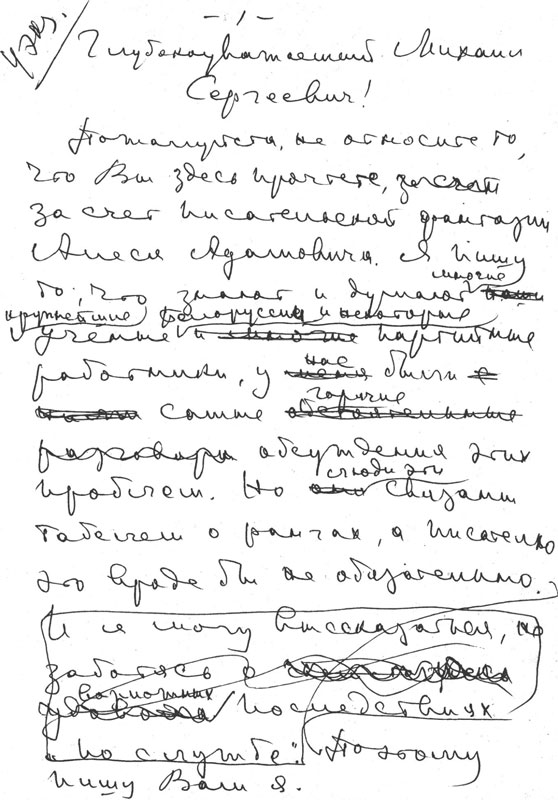 – 1 –
4 экз.
Глубокоуважаемый Михаил
Сергеевич!
Пожалуйста, не относите то,
что Вы здесь прочтете, за счет
за счет писательской фантазии
Алеся Адамовича. Я пишу
многие
то, что знают и думают
крупнейшие белоруссии и некоторые
учёные и многие партийные
нас
работники, у меня были
горячие
самые
разговоры обсуждения этих
люди эти
проблем. Но они связаны
табелем о рангах, а писателю
это вроде бы не обязательно.
И я могу высказаться, не
заботясь о
возможных
последствиях
„по службе". Поэтому
пишу Вам я.